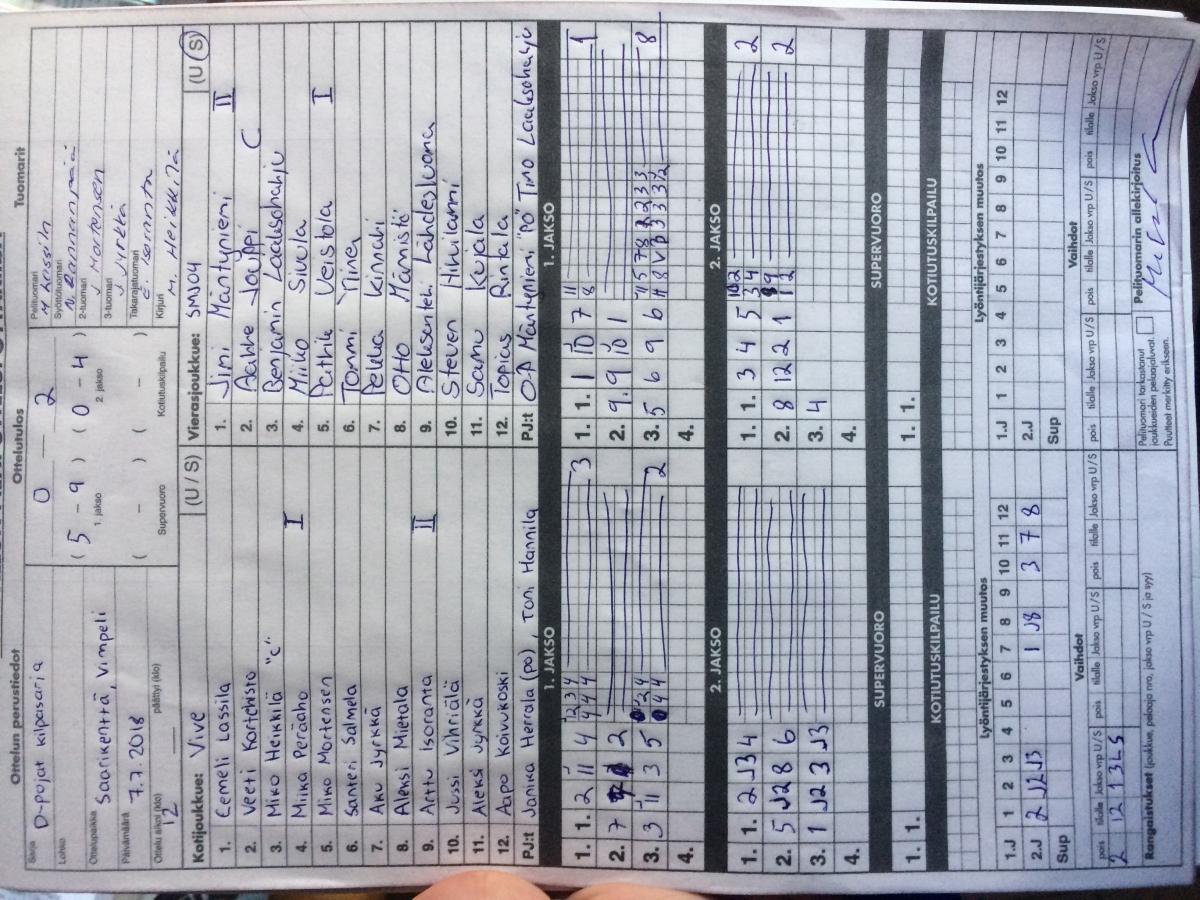 Ottelun perustiedot
Ottelutulos
Tuomarit
Sarja
D-pojat kilpasarja
Lohko
Ottelupaikka
Saarikenttä, Vimpeli
Päivämäärä
7.7.2018
Ottelu alkoi (klo)
12
päättyi (klo)
0 2
( 5 - 9 ) ( 0 - 4 )
1. jakso 2. jakso
( - ) ( - )
Supervuoro Kotiutuskilpailu
Pelituomari
Syöttötuomari
2-tuomari
J Mortensen
3-tuomari
J Jyrkkä
Takarajatuomari
E. Isoranta
Kirjuri
M. Heikkilä
Kotijoukkue: Vive (U / S)
1. Eemeli Lassila
2. Veeti Kortehisto
3. Miko Heikkilä "c"
4. Miika Peräaho I
5. Miko Mortensen
6. Santeri Salmela
7. Aku Jyrkkä
8. Aleksi Mietala
9. Arttu Isoranta II
10. Jussi Vihriälä
11. Aleksi Jynkkä
12. Aapo Koivukoski
PJ:t Janika Herrala (po), Toni Hannila
Vierasjoukkue: SMJ04 (U / S)
1. Jimi Mäntynieni II
2. Aahhe Jouppi C
3. Benjamin Laaksoharju
4. Miiko Sivula
5. Patrik Veistola I
6. Tommi Yrinen
7. Pekka Kinnari
8. Otto Männistö
9. Aleksanteri Lähdesluoma
10. Steven Hiuilammi
11. Samu Kujala
12. Topias Rintala
PJ:t O-P Mäntynieni "PO" Timo Laaksoharju
1. JAKSO
1. 1. 2 11 4 3
2. 7 2
3. 3 11 3 5 2
4.
1. JAKSO
1. 1. 1 10 7 1
2. 9. 9 10 1
3. 5 6 9 6 8
4.
2. JAKSO
1. 1. 2 J3 4
2. 5 J2 8 6
3. 1 J2 3 J3
4.
2. JAKSO
1. 1. 3 4 5 2
2. 8 12 2 1 2
3. 4
4.
SUPERVUORO
1. 1.
SUPERVUORO
1. 1.
KOTIUTUSKILPAILU
KOTIUTUSKILPAILU
Lyöntijärjestyksen muutos
1.J 1 2 3 4 5 6 7 8 9 10 11 12
2.J 2 J2 J3 1 J8 3 7 8
Sup
Lyöntijärjestyksen muutos
1.J 1 2 3 4 5 6 7 8 9 10 11 12
2.J
Sup
Vaihdot
pois tilalle Jakso vrp U/S pois tilalle Jakso vrp U/S pois tilalle Jakso vrp U/S
2 12 1 3L S
Vaihdot
pois tilalle Jakso vrp U/S pois tilalle Jakso vrp U/S pois tilalle Jakso vrp U/S
Rangaistukset (joukkue, pelaaja nro, jakso vrp U / S ja syy)
Pelituomari tarkastanut
joukkueiden pelaajaluvat.
Puutteet merkitty erikseen.
Pelituomarin allekirjoitus